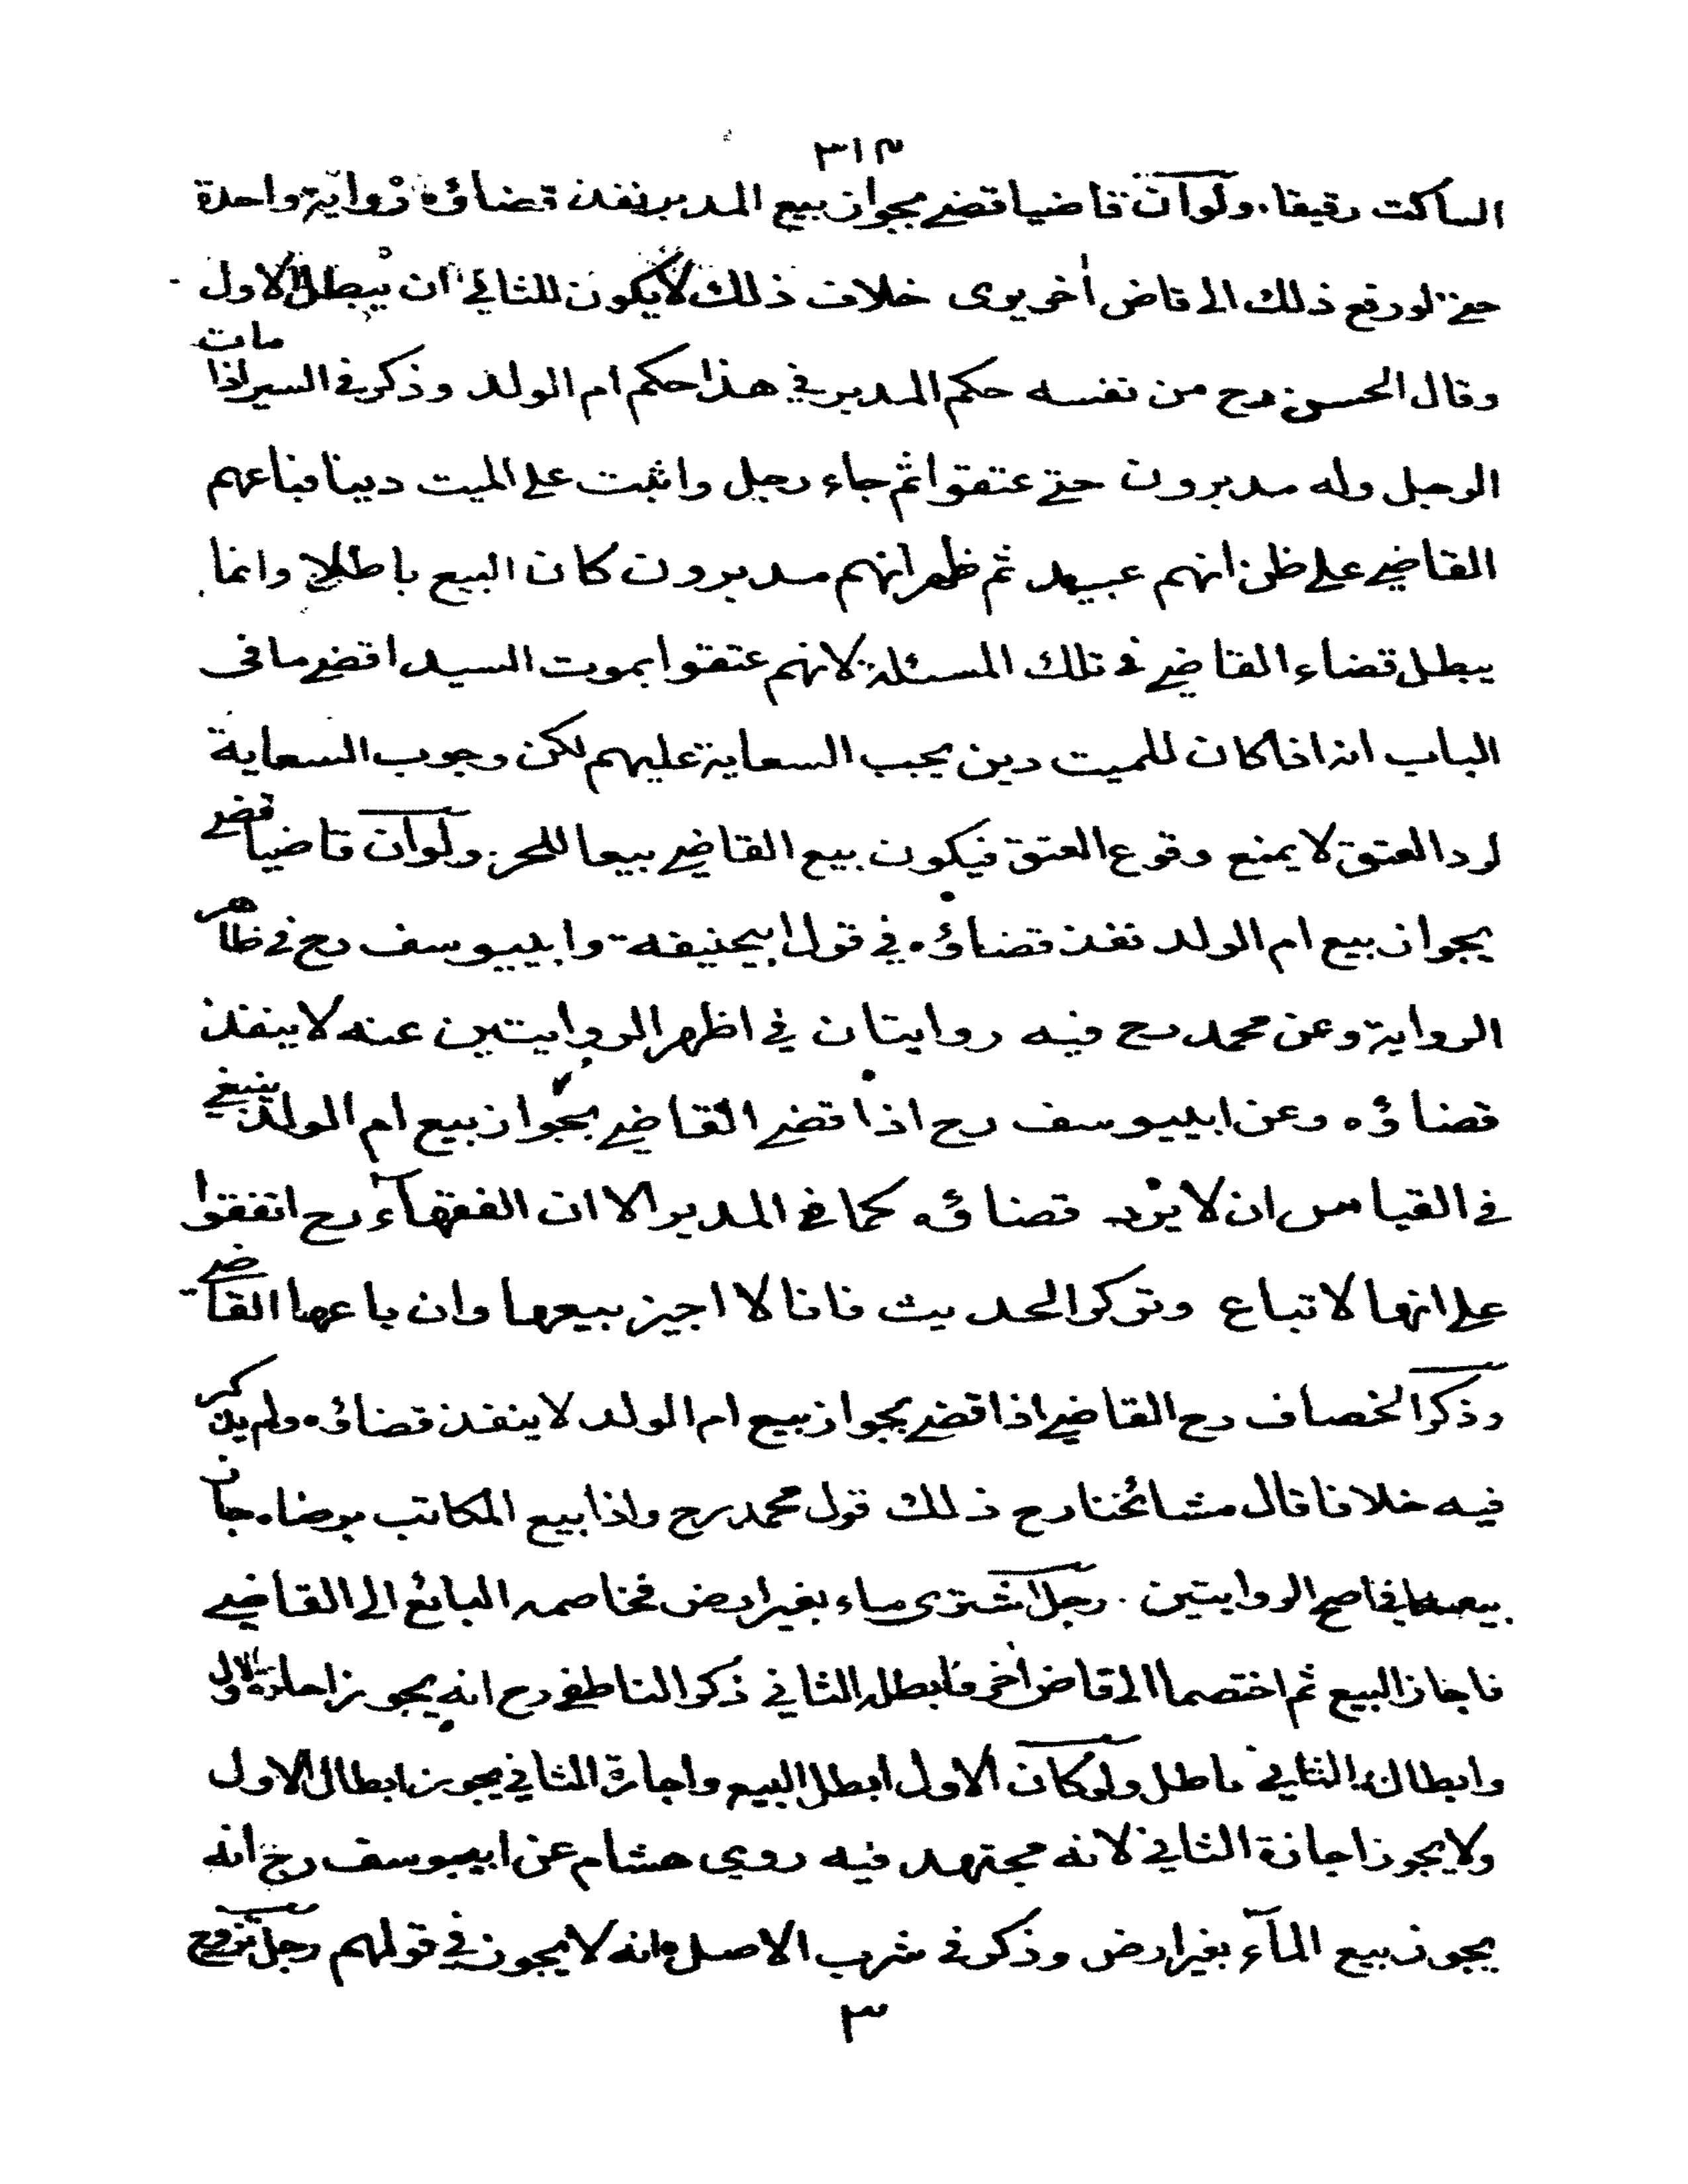 ٣١٣
الساكت رقيقا. ولو ان قاضيا قضے بجواز بيع المدبر نفذ قضاؤه رواية واحدة
حتے لو رفع ذلك الى قاض أخر يرى خلاف ذلك لا يكون للثاني ان يبطل الاول
وقال الحسن رح من نفسه حكم المدبر في هذا حكم ام الولد وذكر في السير اذا مات
الرجل وله مدبرون حتے عتقوا ثم جاء رجل واثبت على الميت دينا فباعهم
القاضي على ظن انهم عبيد ثم ظهر انهم مدبرون كان البيع باطلا وانما
يبطل قضاء القاضي في تلك المسئلة لانهم عتقوا بموت السيد اقضے ما في
الباب انه اذا كان للميت دين يجب السعاية عليهم لكن وجوب السعاية
لرد العتق لا يمنع وقوع العتق فيكون بيع القاضي بيعا للحر. ولو ان قاضيا قضے
بجواز بيع ام الولد نفذ قضاؤه في قول ابيحنيفة وابييوسف رح في ظاهر
الرواية وعن محمد رح فيه روايتان في اظهر الروايتين عنه لا ينفذ
قضاؤه وعن ابييوسف رح اذا قضے القاضي بجواز بيع ام الولد ينبغي
في القياس ان لا يرد قضاؤه كما في المدبر الا ان الفقهآء رح اتفقوا
على انها لا تباع وتركوا الحديث فانا لا اجيز بيعها وان باعها القاضے
وذكر الخصاف رح القاضي اذا قضے بجواز بيع ام الولد لا ينفذ قضاؤه ولم يذكر
فيه خلافا قال مشائخنا رح ذلك قول محمد رح واذا بيع المكاتب برضاه جاز
بيعه في اصح الروايتين. رجل اشترى ماء بغير ارض فخاصمه البائع الى القاضي
فاجاز البيع ثم اختصما الى قاض أخر فابطله الثاني ذكر الناطفي رح انه يجوز اجازة الاول
وابطال الثاني باطل ولو كان الاول ابطل البيع واجازة الثاني يجوز ابطال الاول
ولا يجوز اجازة الثاني لانه مجتهد فيه روى هشام عن ابييوسف رح انه
يجوز بيع المآء بغير ارض وذكر في شرب الاصل انه لا يجوز في قولهم رجل تزوج
٣